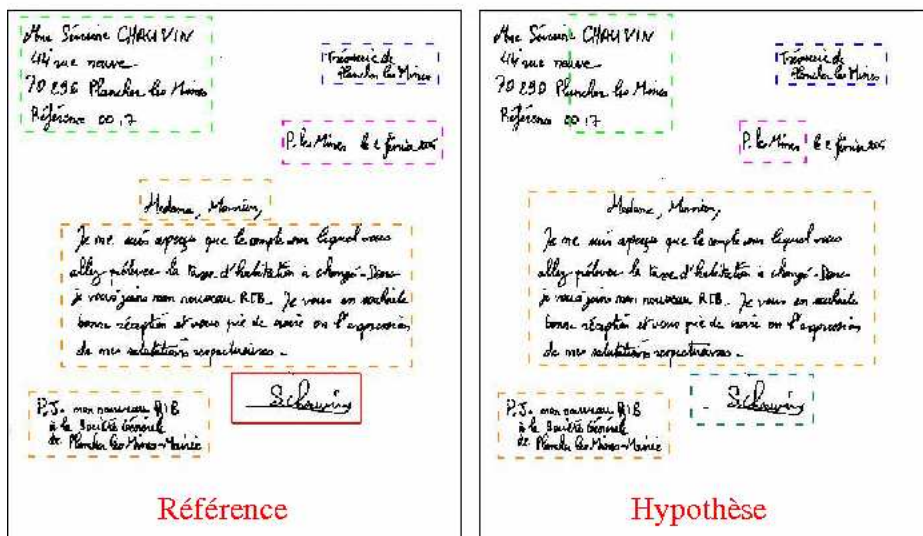 Mme Séverine CHAUVIN
44 rue neuve
70290 Plancher les Mines
Référence 00.17
Trésorerie de
Plancher les Mines
P. les Mines le 2 février
Madame, Monsieur,
Je me suis aperçu que le compte sur lequel vous
allez prélever la taxe d'habitation à changé. Donc
je vous joins mon nouveau RIB. Je vous en souhaite
bonne réception et vous prie de croire en l'expression
de mes salutations respectueuses.
S.Chauvin
P.J. mon nouveau RIB
à la Société Générale
de Plancher les Mines-Mairie
Référence
Mme Séverine CHAUVIN
44 rue neuve
70290 Plancher les Mines
Référence 00.17
Trésorerie de
Plancher les Mines
P. les Mines le 2 février
Madame, Monsieur,
Je me suis aperçu que le compte sur lequel vous
allez prélever la taxe d'habitation à changé. Donc
je vous joins mon nouveau RIB. Je vous en souhaite
bonne réception et vous prie de croire en l'expression
de mes salutations respectueuses.
S.Chauvin
P.J. mon nouveau RIB
à la Société Générale
de Plancher les Mines-Mairie
Hypothèse